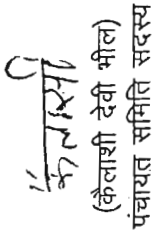 कैलाशी
(कैलाशी देवी भील)
पंचायत समिति सदस्य